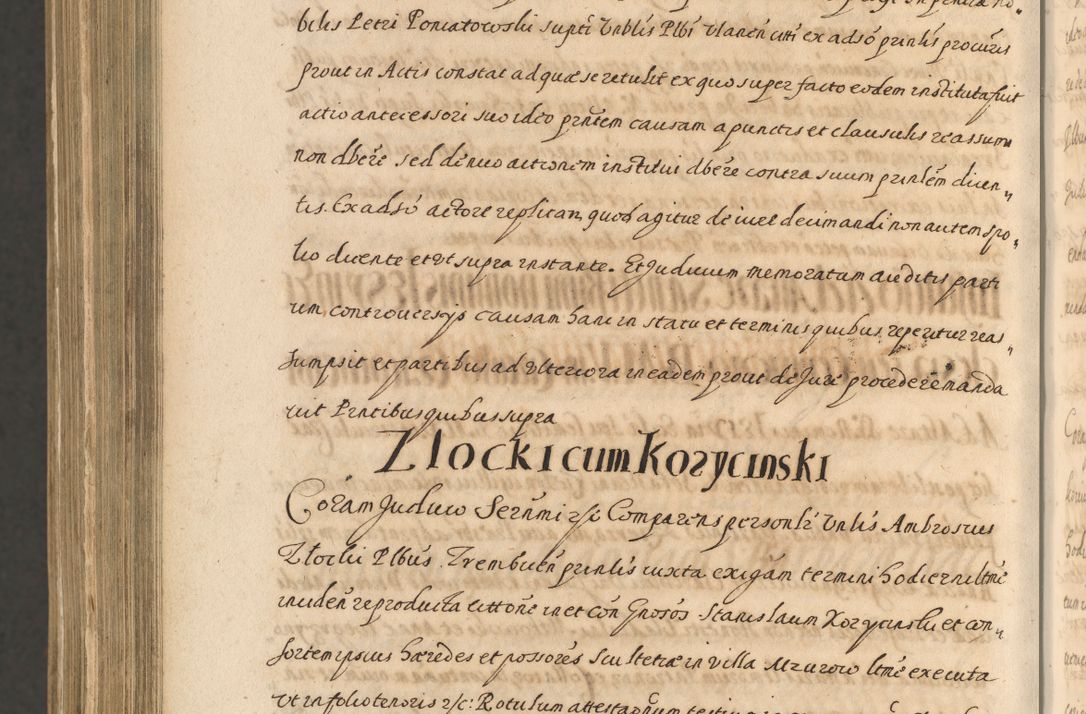 bilis Petri Poniatowski supti Vnblis Plbi Vlanen citti ex adso prinlis procuris
prout in Actis constat ad quæ se retulit ex quo super facto eodem instituta fuit
actio antecessori suo ideo prntem causam a punctis et clausulis reassum
non dbere sed denuo actionem institui dbere contra suum prinlem dicen„
tis. Ex adso actore replican, quod agitur de iure decimandi non autem spo„
lio dicente et vt supra instante. Et Judicium memoratum auditis parti
um controuersys causam hanc in statu et terminis quibus reperitur reas„
sumpsit et partibus ad vlteriora in eadem prout de Jure procedere manda
uit Prntibus quibus supra
Złocki cum Kozycinski
Coram Judicio Serenmi &c Comparens personlr Vnlis Ambrosius
Złocki Plbus. Trembucen prinlis iuxta exigam termini hodierni ltme
inciden reproducta citone in et con Gnosos Stanislaum Kozycinski et con„
sortem ipsius hæredes et possores Scultetiæ in villa Mzurow ltme executa
vt in folio tenoris &c: Rotulum attestaonum